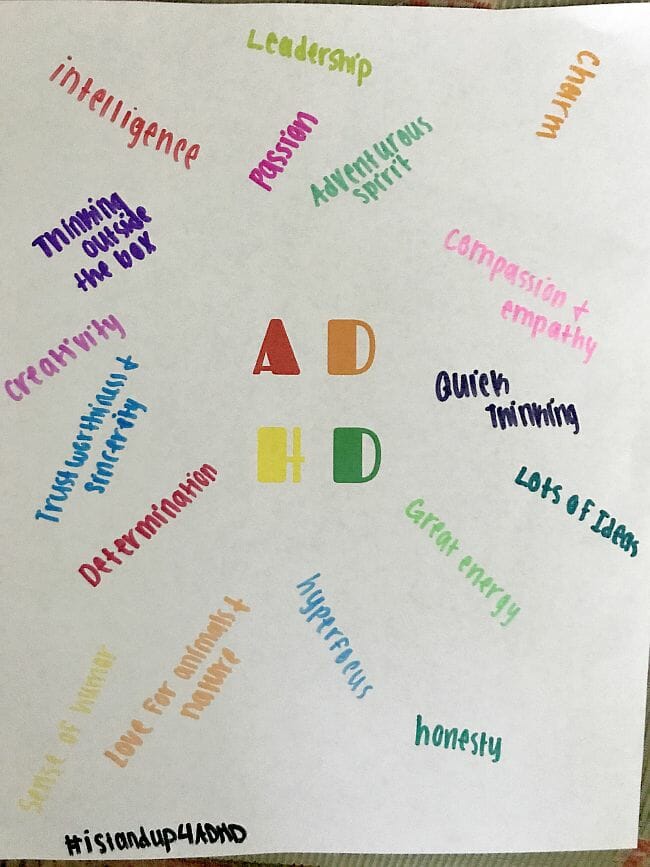 Leadership
Charm
intelligence
Passion
Adventurous
spirit
Thinking
outside
the box
Compassion +
empathy
Creativity
A D
H D
Quick
Thinking
Trustworthiness +
sincerity
Determination
Lots of Ideas
Great energy
hyperfocus
Love for animals +
nature
Sense of humor
honesty
#istandup4ADHD